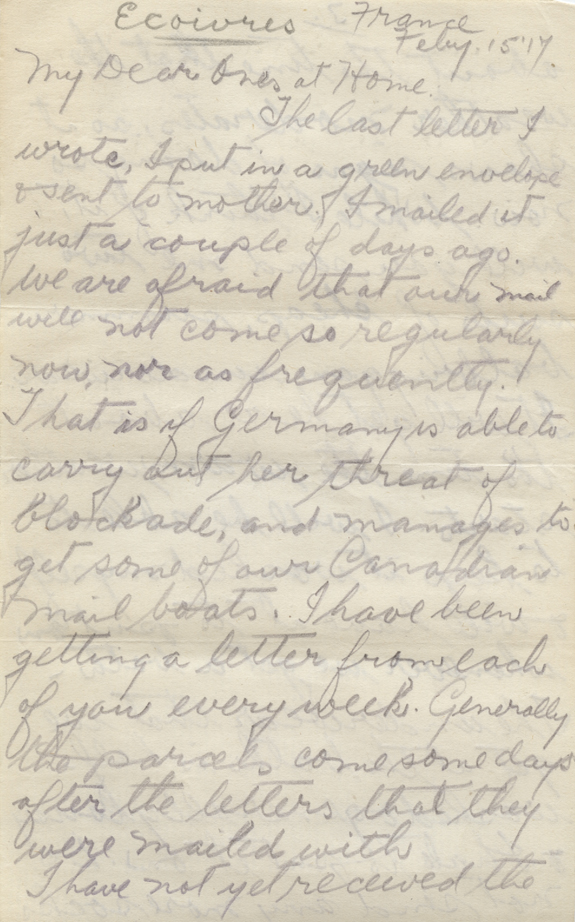 Ecoivres France
Feby. 15 '17.
My Dear Ones at Home.
The last letter I
wrote, I put in a green envelope
& sent to mother. I mailed it
just a couple of days ago.
We are afraid that our mail
will not come so regularly
now, nor as frequently.
That is if Germany is able to
carry out her threat of
blockade, and manages to
get some of our Canadian
mail boats. I have been
getting a letter from each
of you every week. Generally
the parcels come some days
after the letters that they
were mailed with
I have not yet received the